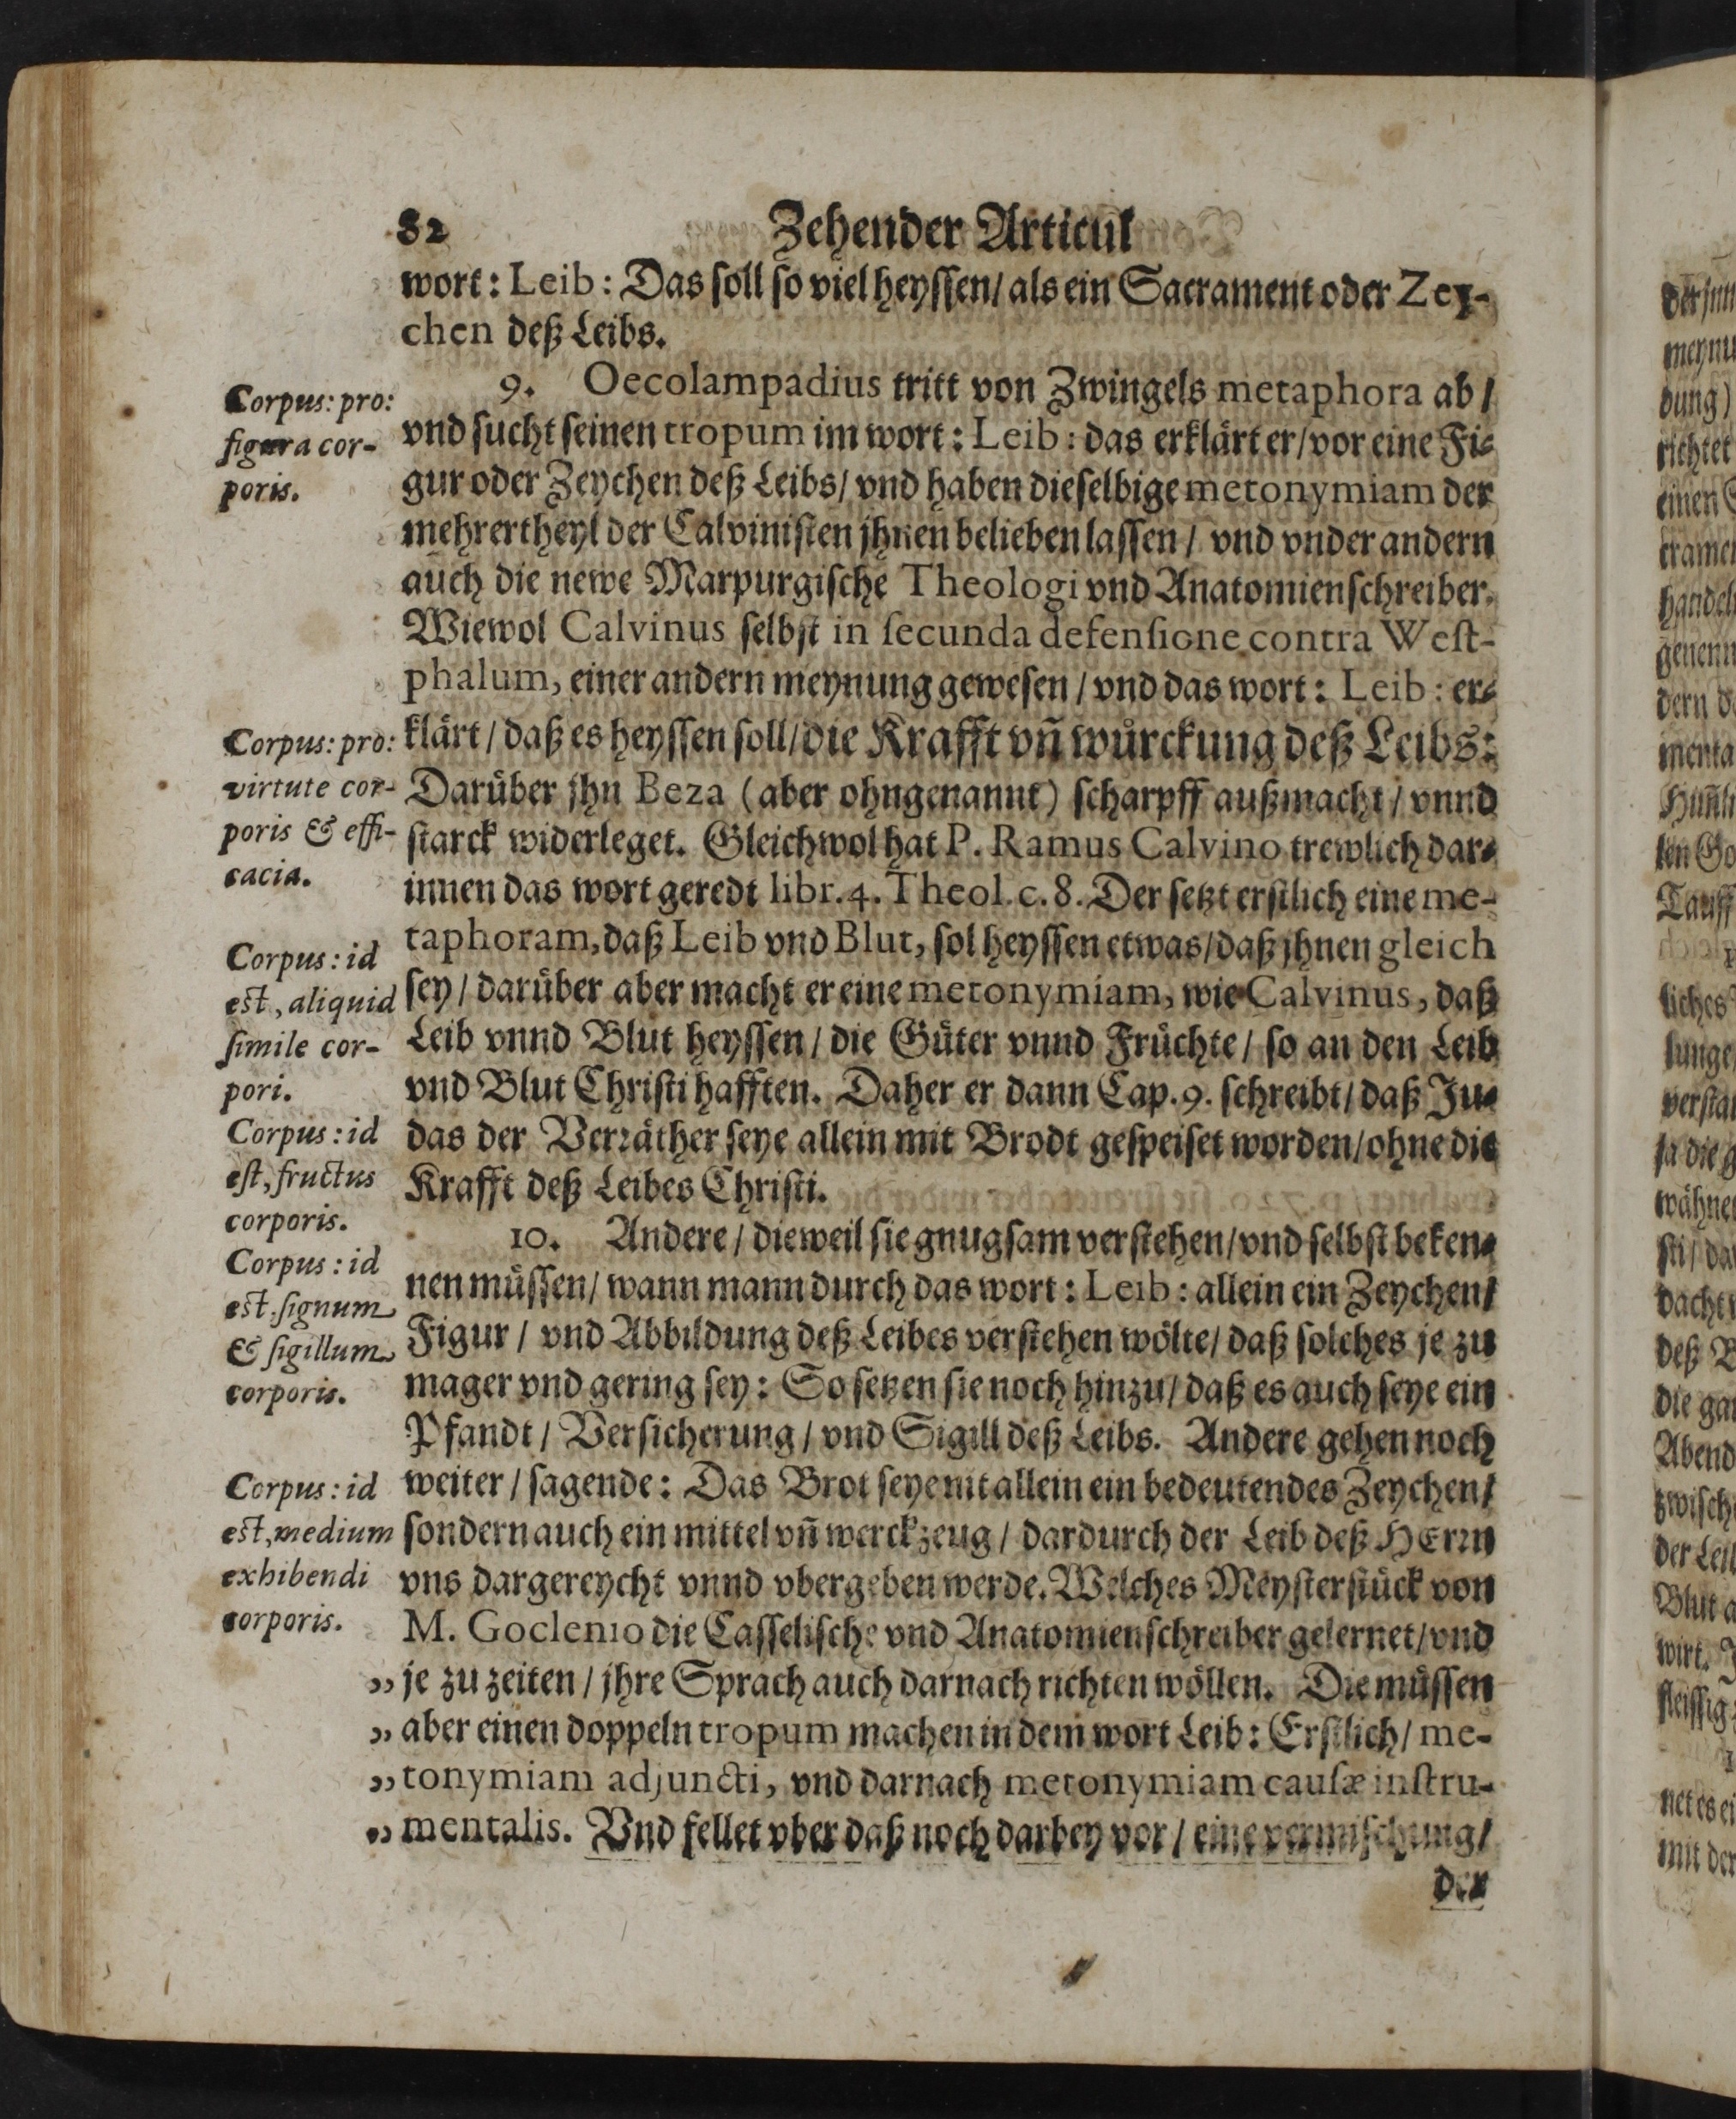 82 Zehender Articul
wort: Leib: Das soll so viel heyssen/ als ein Sacrament oder Zey-
chen deß Leibs.
9. Oecolampadius tritt von Zwingels metaphora ab /
vnd sucht seinen tropum im wort: Leib: das erklärt er/ vor eine Fi-
gur oder Zeychen deß Leibs/ vnd haben dieselbige metonymiam der
mehrertheyl der Calvinisten jhnen belieben lassen / vnd vnder andern
auch die newe Marpurgische Theologi vnd Anatomienschreiber.
Wiewol Calvinus selbst in ſecunda defenſione contra Weſt-
phalum, einer andern meynung gewesen / vnd das wort: Leib: er-
klärt / daß es heyssen soll/ die Krafft vñ würckung deß Leibs:
Darüber jhn Beza (aber ohngenannt) scharpff außmacht / vnnd
starck widerleget. Gleichwol hat P. Ramus Calvino trewlich dar-
innen das wort geredt libr. 4. Theol. c. 8. Der setzt erstlich eine me-
taphoram, daß Leib vnd Blut, sol heyssen etwas/ daß jhnen gleich
sey / darüber aber macht er eine metonymiam, wie Calvinus, daß
Leib vnnd Blut heyssen / die Güter vnnd Früchte / so an den Leib
vnd Blut Christi hafften. Daher er dann Cap. 9. schreibt / daß Ju-
das der Verräther seye allein mit Brodt gespeiset worden/ ohne die
Krafft deß Leibes Christi.
10. Andere / dieweil sie gnugsam verstehen/ vnd selbst beken-
nen müssen/ wann mann durch das wort: Leib: allein ein Zeychen/
Figur / vnd Abbildung deß Leibes verstehen wölte/ daß solches je zu
mager vnd gering sey: So setzen sie noch hinzu/ daß es auch seye ein
Pfandt / Versicherung / vnd Sigill deß Leibs. Andere gehen noch
weiter / sagende: Das Brot seye nit allein ein bedeutendes Zeychen/
sondern auch ein mittel vñ werckzeug / dardurch der Leib deß HErrn
vns dargereycht vnnd vbergeben werde. Welches Meysterstück von
M. Goclenio die Casselische vnd Anatomienschreiber gelernet/ vnd
„ je zu zeiten / jhre Sprach auch darnach richten wöllen. Die müssen
„ aber einen doppeln tropum machen in dem wort Leib: Erstlich/ me-
„ tonymiam adjuncti, vnd darnach metonymiam cauſæ inſtru-
„ mentalis. Vnd fellet vber daß noch darbey vor / eine vermischung/
der
Corpus: pro:
figura cor-
poris.
Corpus: pro:
virtute cor-
poris & effi-
cacia.
Corpus: id
est, aliquid
ſimile cor-
pori.
Corpus: id
eſt, fructus
corporis.
Corpus: id
est. ſignum
& ſigillum
corporis.
Corpus: id
est, medium
exhibendi
corporis.
meynu
dung)
richtet
einen
handel
genenn
dern
menta
Tauff
liches
lunge
wähne
dacht
deß
die
Abend
zwisch
der Leib
Blut
wirt.
fleissig
net es
mit der